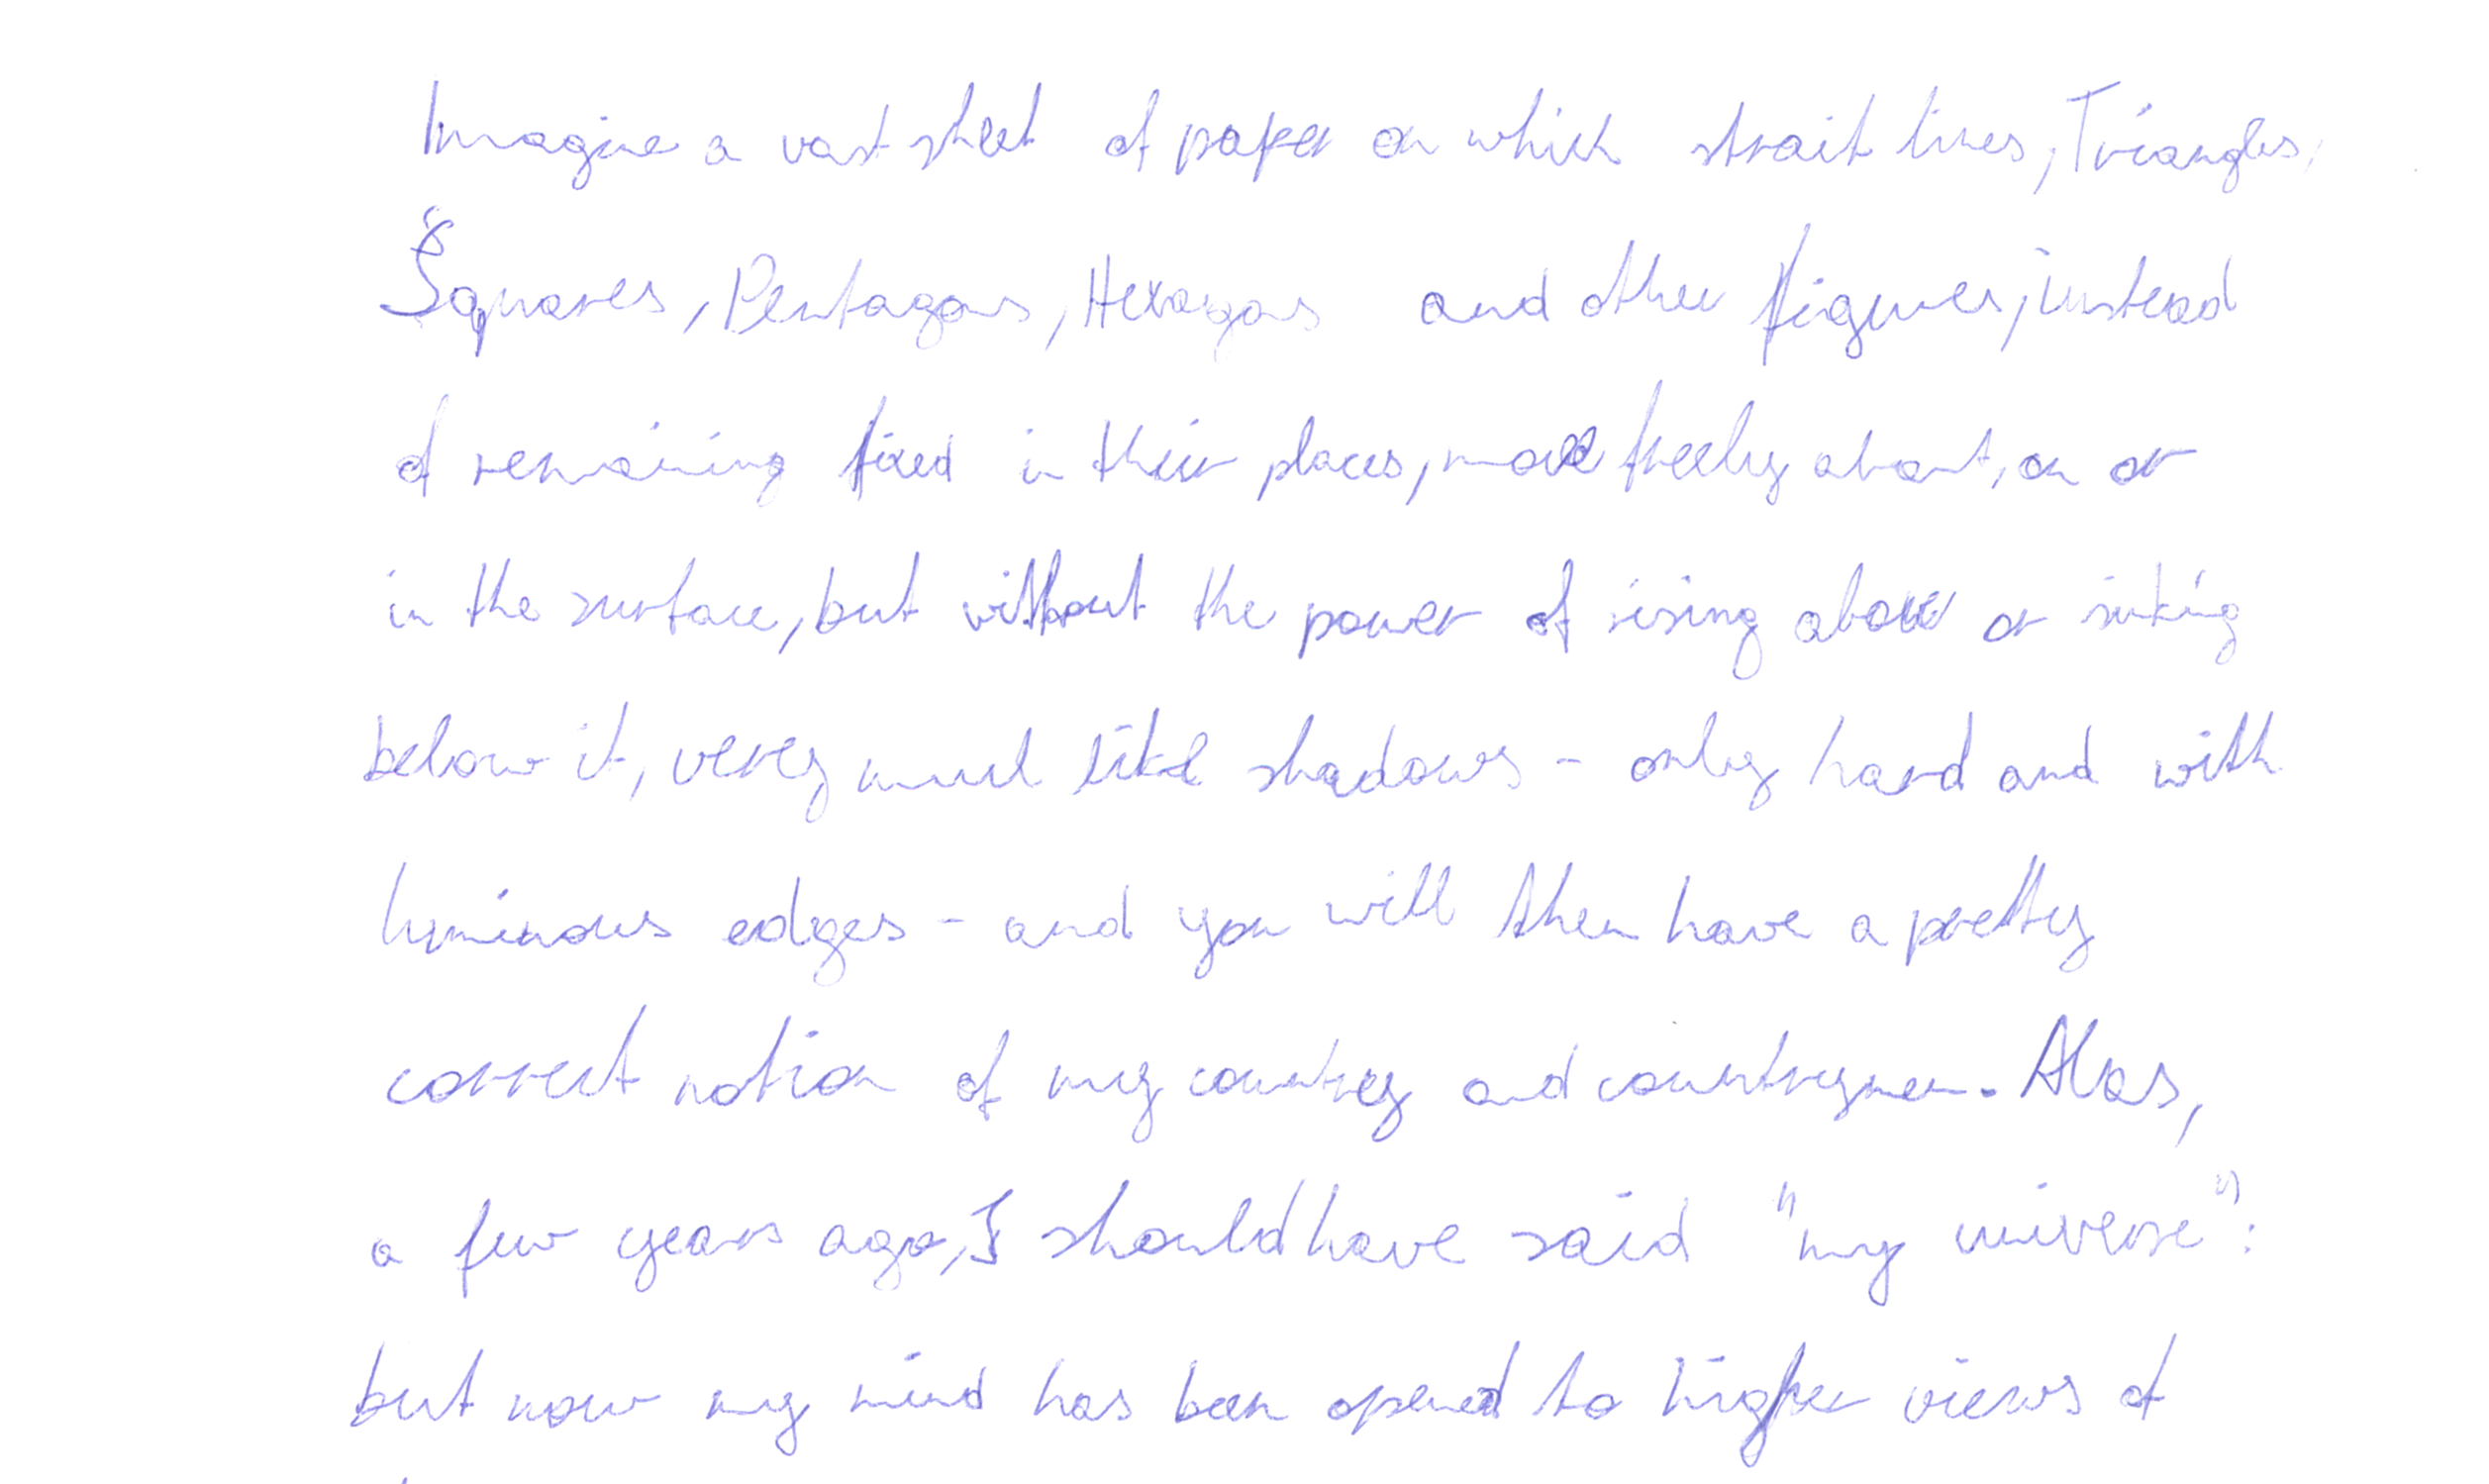 Imagine a vast sheet of paper on which strait lines, Triangles,
Squares, Pentagons, Hexagons and other figures, instead
of remaining fixed in their places, move freely about, on or
in the surface, but without the power of rising above or sinking
below it, very much like shadows - only hard and with
luminous edges - and you will then have a pretty
correct notion of my country and countrymen. Alas,
a few years ago, I should have said "my universe":
but now my mind has been opened to higher views of